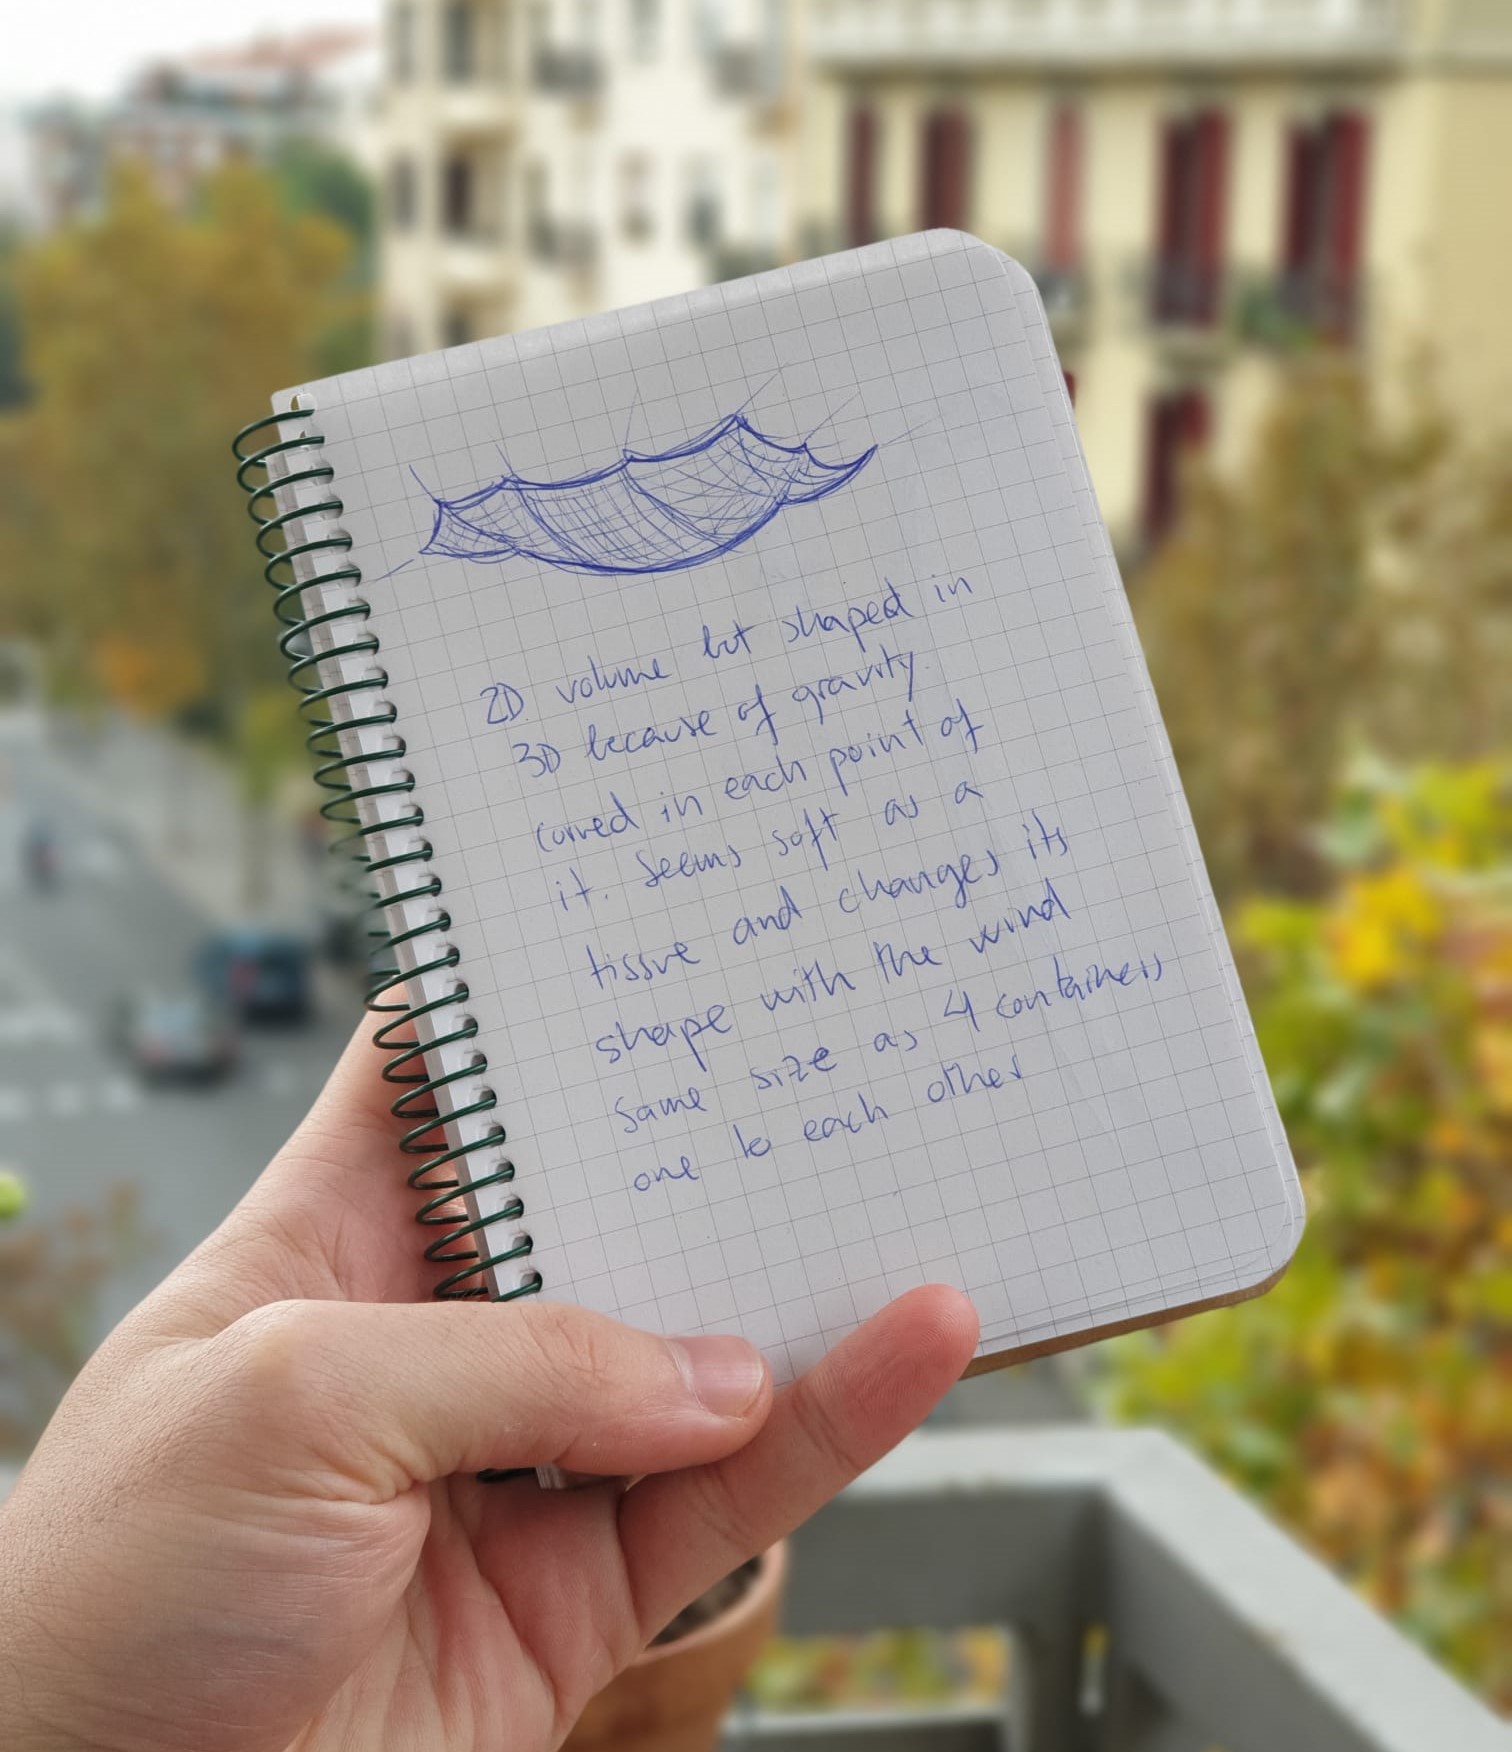 2D volume but shaped in
3D because of gravity.
curved in each point of
it. Seems soft as a
tissue and changes its
shape with the wind
Same size as 4 containers
one to each other